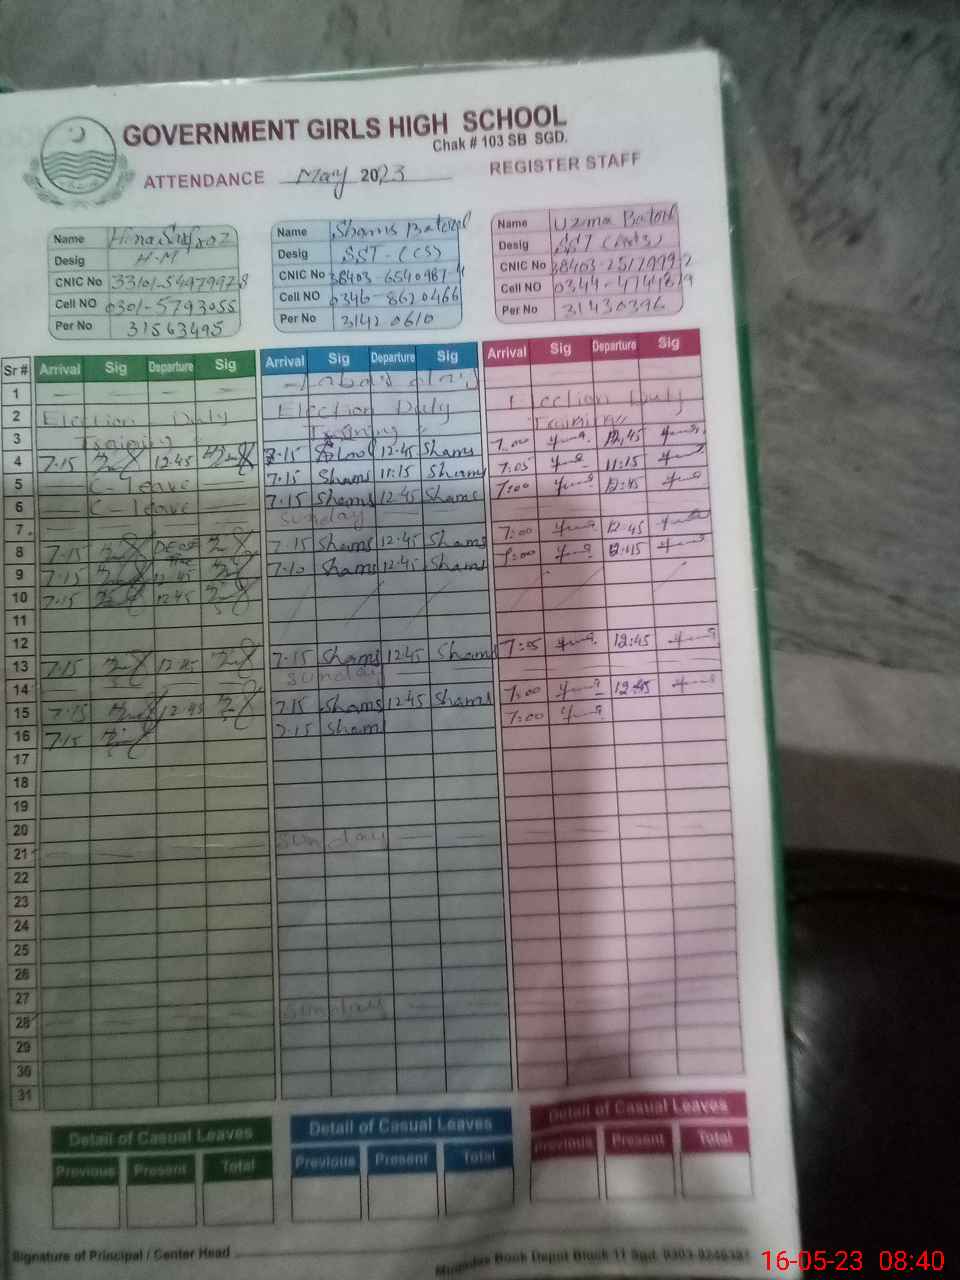 GOVERNMENT GIRLS HIGH SCHOOL
Chak # 103 SB SGD.
ATTENDANCE May 2023 REGISTER STAFF
Name Hina Sarfraz Name Shams Batool Name Uzma Batool
Desig H.M Desig SST-(CS) Desig SST (Arts)
CNIC No CNIC No 38403-6540987-4 CNIC No
Cell NO 0301-5793055 Cell NO 0346-8620466 Cell NO
Per No 31563495 Per No 31420610 Per No 31430396
Sr # Arrival Sig Departure Sig Arrival Sig Departure Sig Arrival Sig Departure Sig
1
2 Election Duty Election Duty Election Duty
3 Training Training Training
4 7-15 12-45 7-15 12-45 Shams 7:00 12:45
5 C-leave 7-15 Shams 11:15 Shams 7:05 11:15
6 C-leave 7-15 Shams 12-45 Shams 7:00 12:45
7 Sunday
8 7-15 7-15 Shams 12-45 Shams 7:00 12:45
9 7-15 12-45 7-10 Shams 12-45 Shams
10 7-15 12-45
11
12
13 7-15 12-45 7-15 Shams 12-45 Shams 7:05 12:45
14 Sunday
15 7-15 12-45 7-15 Shams 12-45 Shams 7:00 12:45
16 7-15 7-15 Shams 7:00
17
18
19
20
21 Sunday
22
23
24
25
26
27
28 Sunday
29
30
31
Detail of Casual Leaves Detail of Casual Leaves Detail of Casual Leaves
Previous Present Total Previous Present Total Previous Present Total
Signature of Principal / Center Head
Book Depot Block 11 Sgd.
16-05-23 08:40